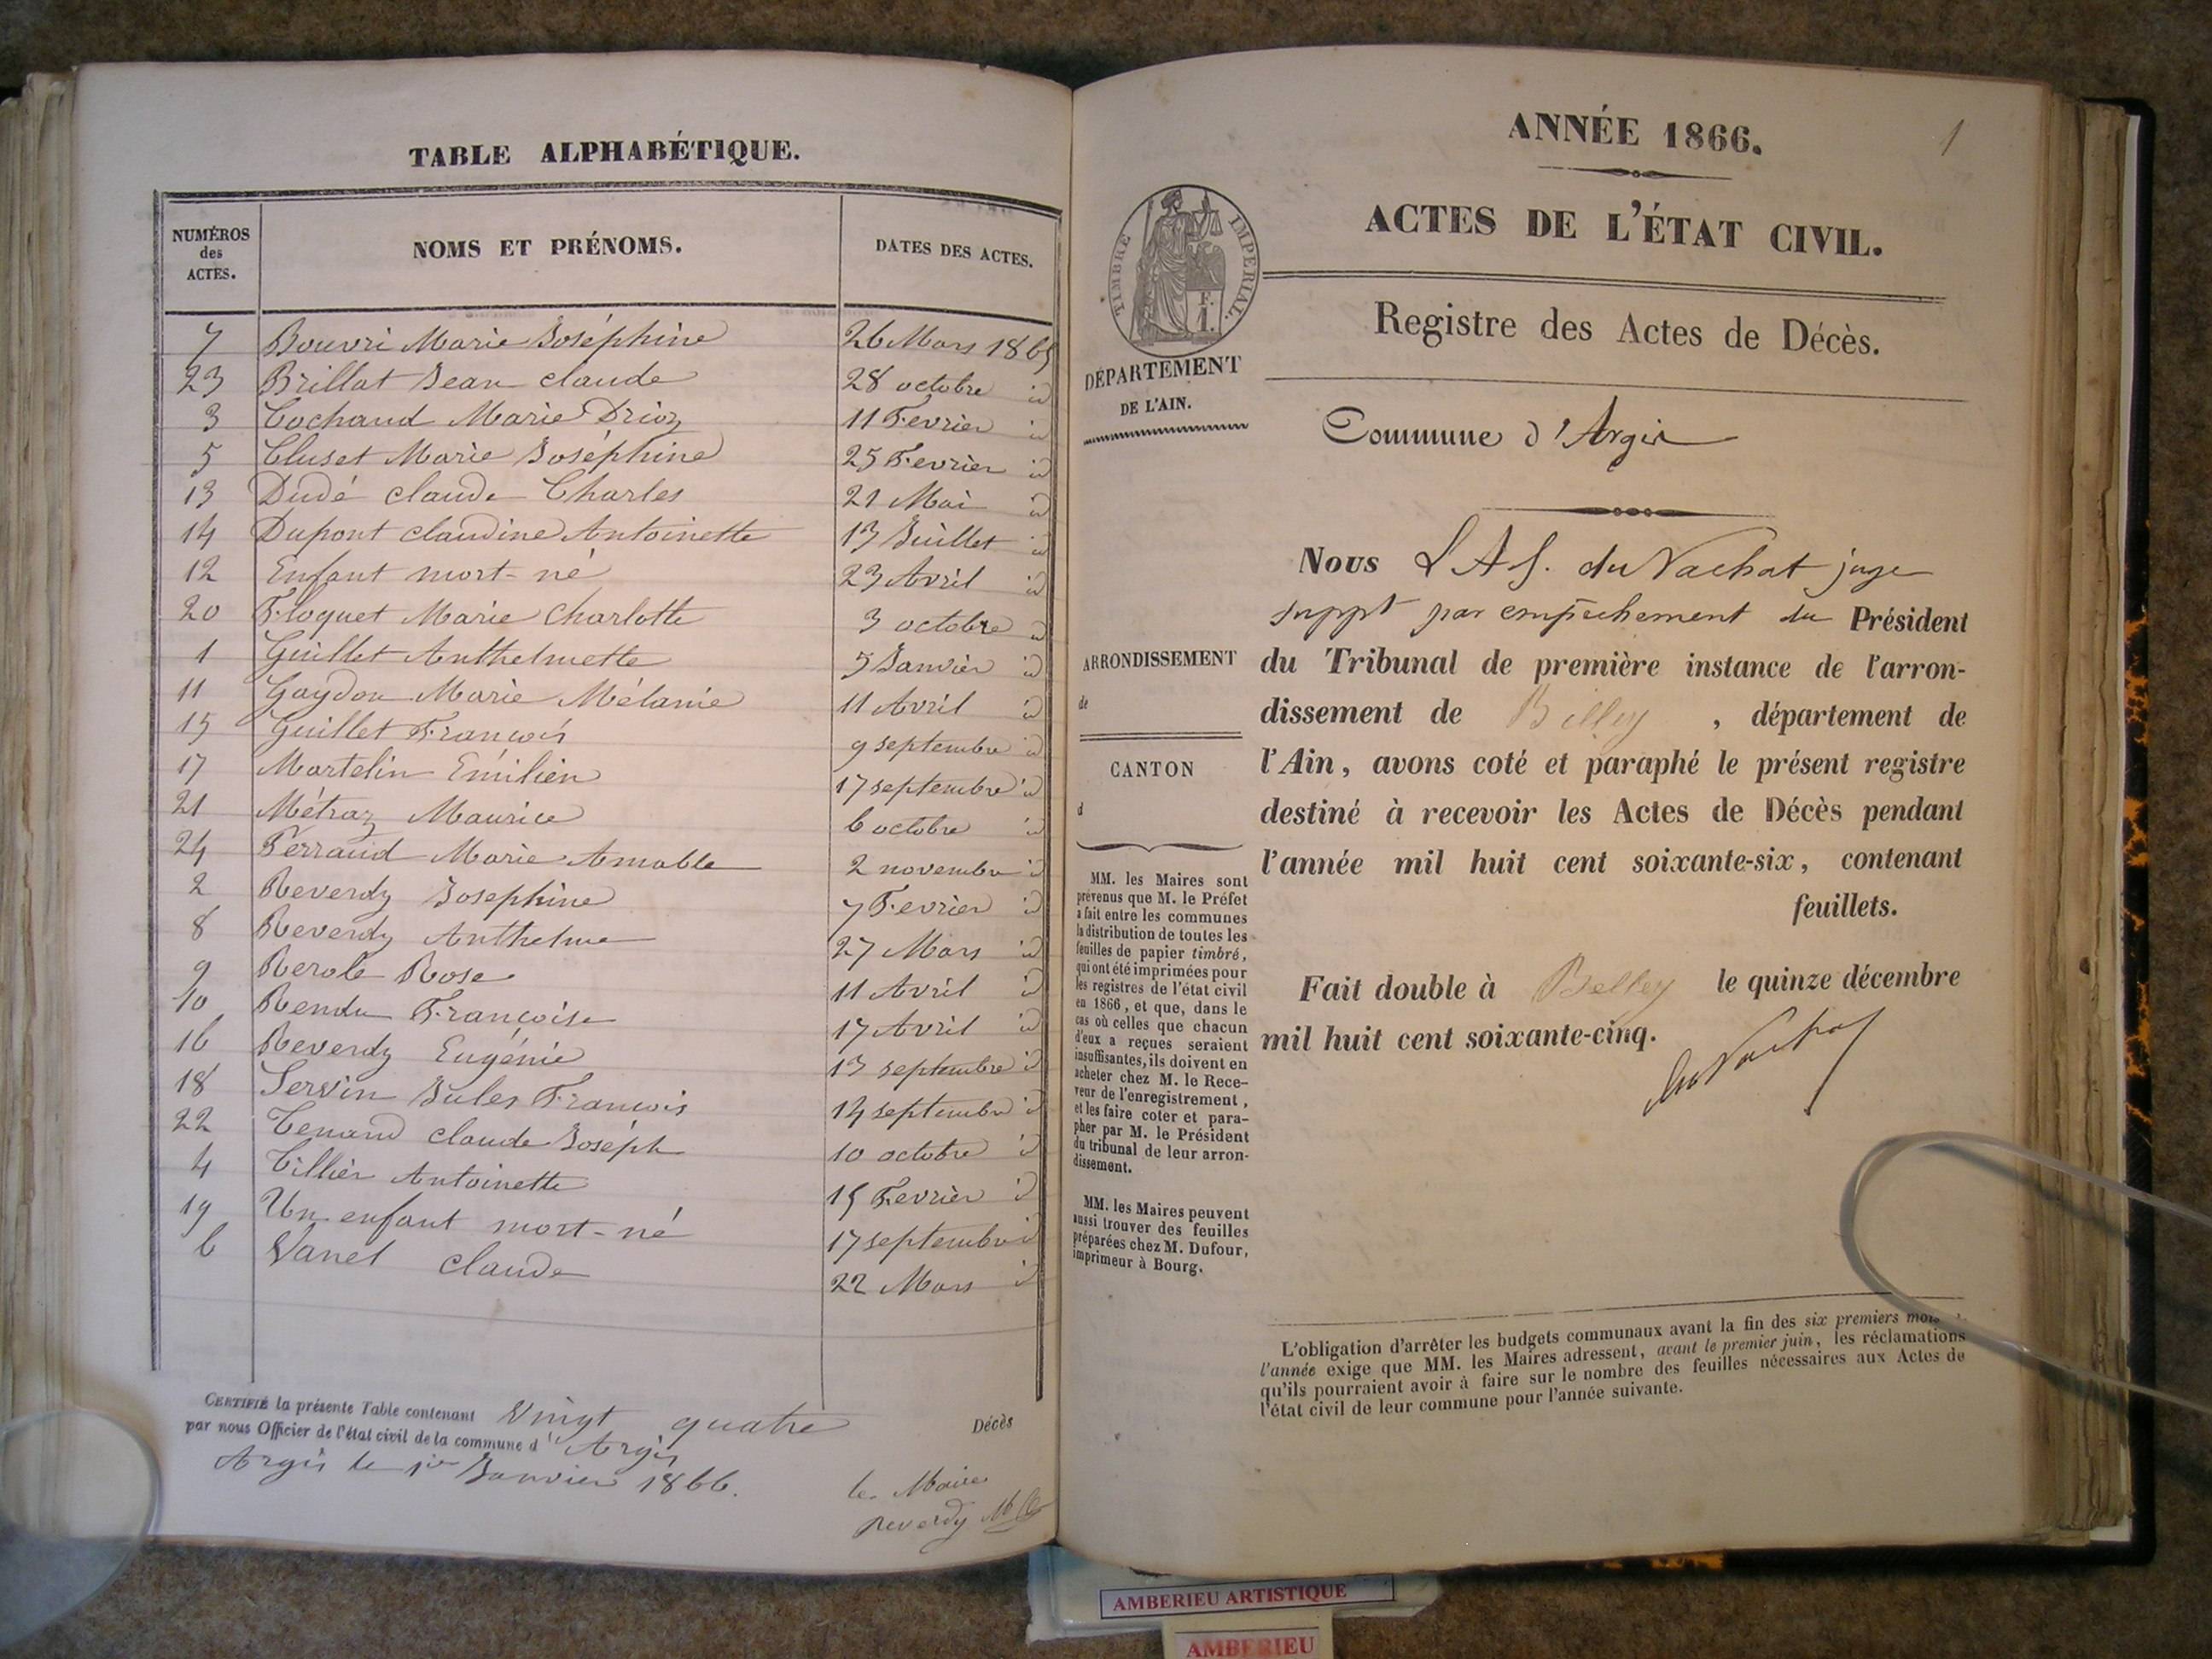 TABLE ALPHABÉTIQUE.
NUMÉROS des ACTES. NOMS ET PRÉNOMS. DATES DES ACTES.
7 Bouvri Marie Joséphine 26 Mars 1865
23 Brillat Jean claude 28 octobre id
3 Cochaud Marie Drioz 11 Fevrier id
5 Cluset Marie Joséphine 25 Fevrier id
13 Dudé claude Charles 21 Mai id
14 Dupont claudine Antoinette 13 Juillet id
12 Enfant mort-né 23 Avril id
20 Floquet Marie Charlotte 3 octobre id
1 Guillet Anthelmette 5 Janvier id
11 Gaydon Marie Mélanie 11 Avril id
15 Guillet François 9 septembre id
17 Martelin Emilien 17 septembre id
21 Métraz Maurice 6 octobre id
24 Ferraud Marie Amable 2 novembre id
2 Reverdy Josephine 7 Fevrier id
8 Reverdy Anthelme 27 Mars id
9 Rerole Rose 11 Avril id
10 Rendu Françoise 17 Avril id
16 Reverdy Eugénie 13 septembre id
18 Servin Jules François 14 septembre id
22 Tenand claude Joséph 10 octobre id
4 Tillier Antoinette 15 Fevrier id
19 Un enfant mort-né 17 septembre id
6 Vanel claude 22 Mars id
CERTIFIÉ la présente Table contenant Vingt quatre Décès
par nous Officier de l'état civil de la commune d' Argis
Argis le 1er Janvier 1866.
le Maire
Reverdy
1
ANNÉE 1866.
ACTES DE L'ÉTAT CIVIL.
TIMBRE IMPÉRIAL.
F. 1.
Registre des Actes de Décès.
DÉPARTEMENT
DE L'AIN.
Commune d'Argis
Nous L A S. du Vachat juge
suppt par empêchement du Président
ARRONDISSEMENT
de
du Tribunal de première instance de l'arron-
dissement de Belley , département de
CANTON
d
l'Ain, avons coté et paraphé le présent registre
destiné à recevoir les Actes de Décès pendant
l'année mil huit cent soixante-six, contenant
feuillets.
Fait double à Belley le quinze décembre
mil huit cent soixante-cinq.
du Vachat
MM. les Maires sont
prévenus que M. le Préfet
a fait entre les communes
la distribution de toutes les
feuilles de papier timbré,
qui ont été imprimées pour
les registres de l'état civil
en 1866, et que, dans le
cas où celles que chacun
d'eux a reçues seraient
insuffisantes, ils doivent en
acheter chez M. le Rece-
veur de l'enregistrement,
et les faire coter et para-
pher par M. le Président
du tribunal de leur arron-
dissement.
MM. les Maires peuvent
aussi trouver des feuilles
préparées chez M. Dufour,
imprimeur à Bourg.
L'obligation d'arrêter les budgets communaux avant la fin des six premiers mois
l'année exige que MM. les Maires adressent, avant le premier juin, les réclamations
qu'ils pourraient avoir à faire sur le nombre des feuilles nécessaires aux Actes de
l'état civil de leur commune pour l'année suivante.
AMBERIEU ARTISTIQUE
AMBERIEU